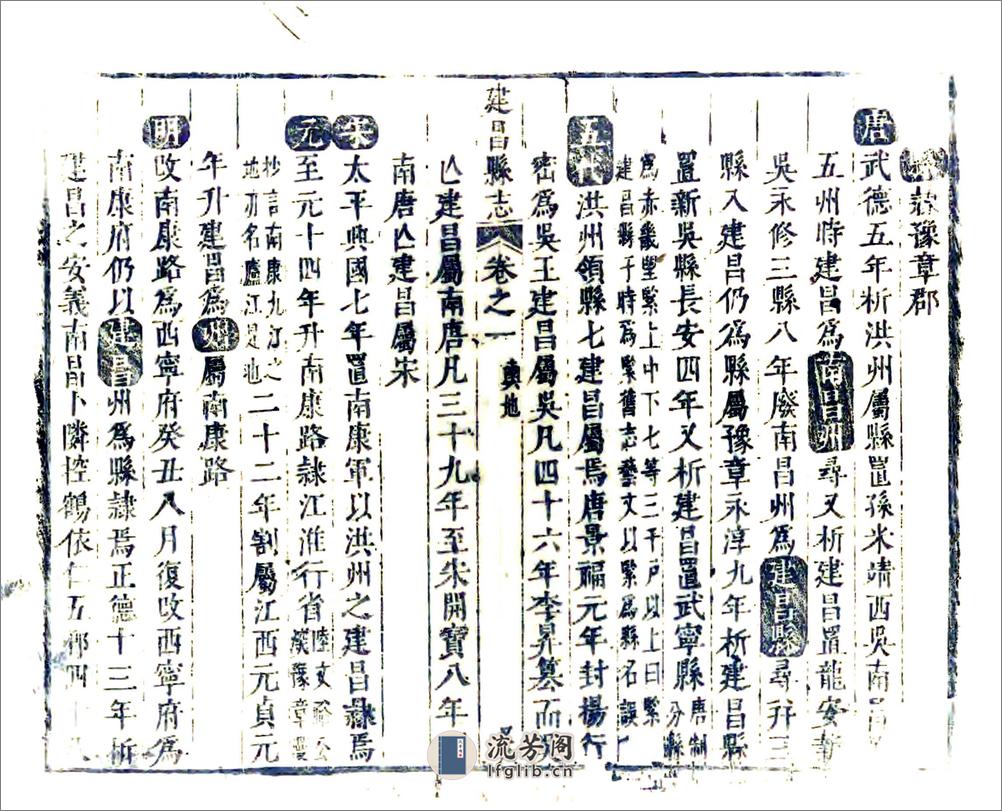 豫章郡
唐武德五年析洪州屬縣置孫永靖西吳南昌
五州時建昌為南昌州尋又析建昌置龍安新
吳永修三縣八年廢南昌州為建昌縣尋并三
縣入建昌仍為縣屬豫章永淳九年析建昌縣
置新吳縣長安四年又析建昌置武寧縣唐制分縣
為赤畿望緊上中下七等三千戶以上曰緊
建昌縣于時為緊舊志藝文以緊為縣名誤
五代洪州領縣七建昌屬焉唐景福元年封楊行
密為吳王建昌屬吳凡四十六年李昪篡而
亾建昌屬南唐凡三十九年至宋開寶八年
南唐亾建昌屬宋
建昌縣志 卷之一 輿地
宋太平興國七年置南康軍以洪州之建昌隸焉
元至元十四年升南康路隸江淮行省陸文裕公豫章漫
抄言南康九江之
地亦名廬江是也二十二年割屬江西元貞元
年升建昌為州屬南康路
明改南康路為西寧府癸丑八月復改西寧府為
南康府仍以建昌州為縣隸焉正德十三年析
建昌之安義南昌卜隣控鶴依仁五鄉四十八
流芳阁
lfglib.cn